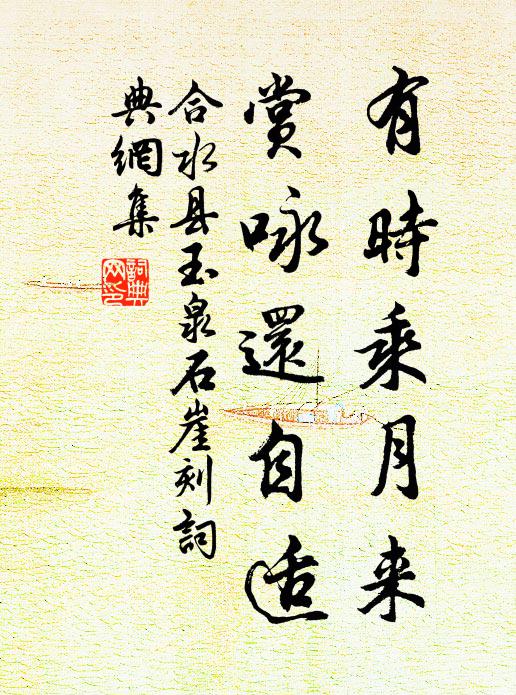 有時乘月来
賞咏還自适
合水县玉泉石崖刻詞
典網集
詞典
网印